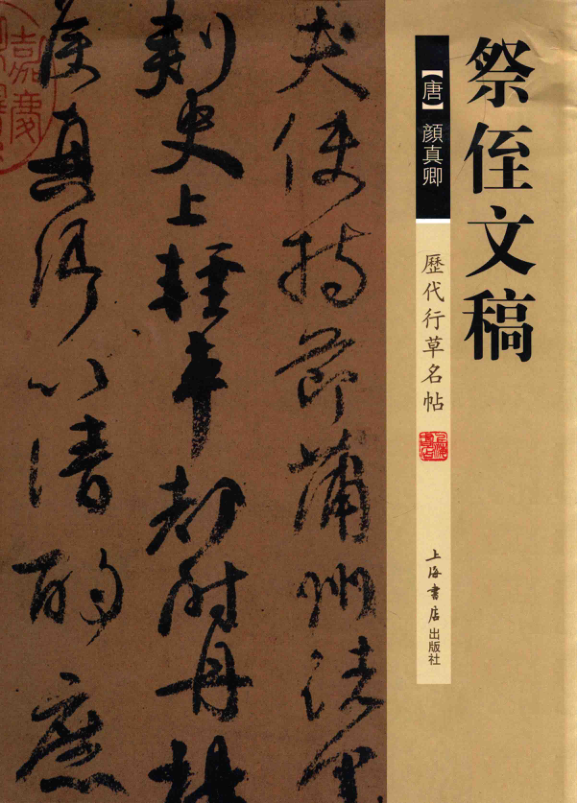 祭侄文稿
【唐】顔真卿
歷代行草名帖
上海書店出版社
夫使持節蒲州諸軍
刺史上輕車都尉丹楊
侯真卿以清酌庶
嘉慶